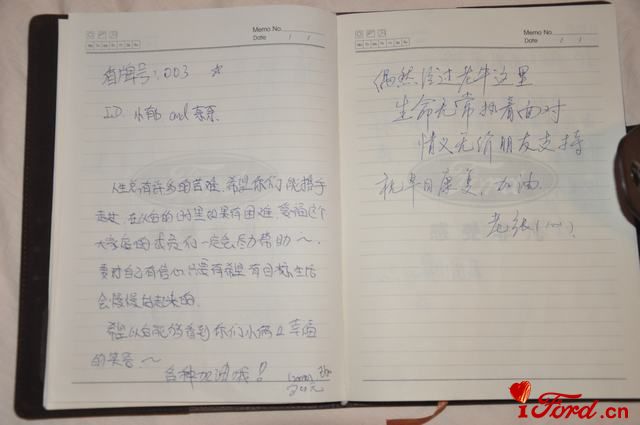 Memo No.
Date / /
Mo Tu We Th Fr Sa Su
车牌号:003 ☆
ID 小郁 and 东东
人生总有许多的苦难,希望你们能携手
走过,在以后的日子里如果有困难 爱福这个
大家庭的成员们一定会尽力帮助~
要对自己有信心,只要有希望有目标,生活
会慢慢好起来的.
希望以后能够看到你们小俩口幸福
的笑容~
各种加油哦!
Memo No.
Date / /
Mo Tu We Th Fr Sa Su
偶然经过老牛这里
生命无常执着面对
情义无价朋友支持
祝早日康复,加油
老张
iFord.cn